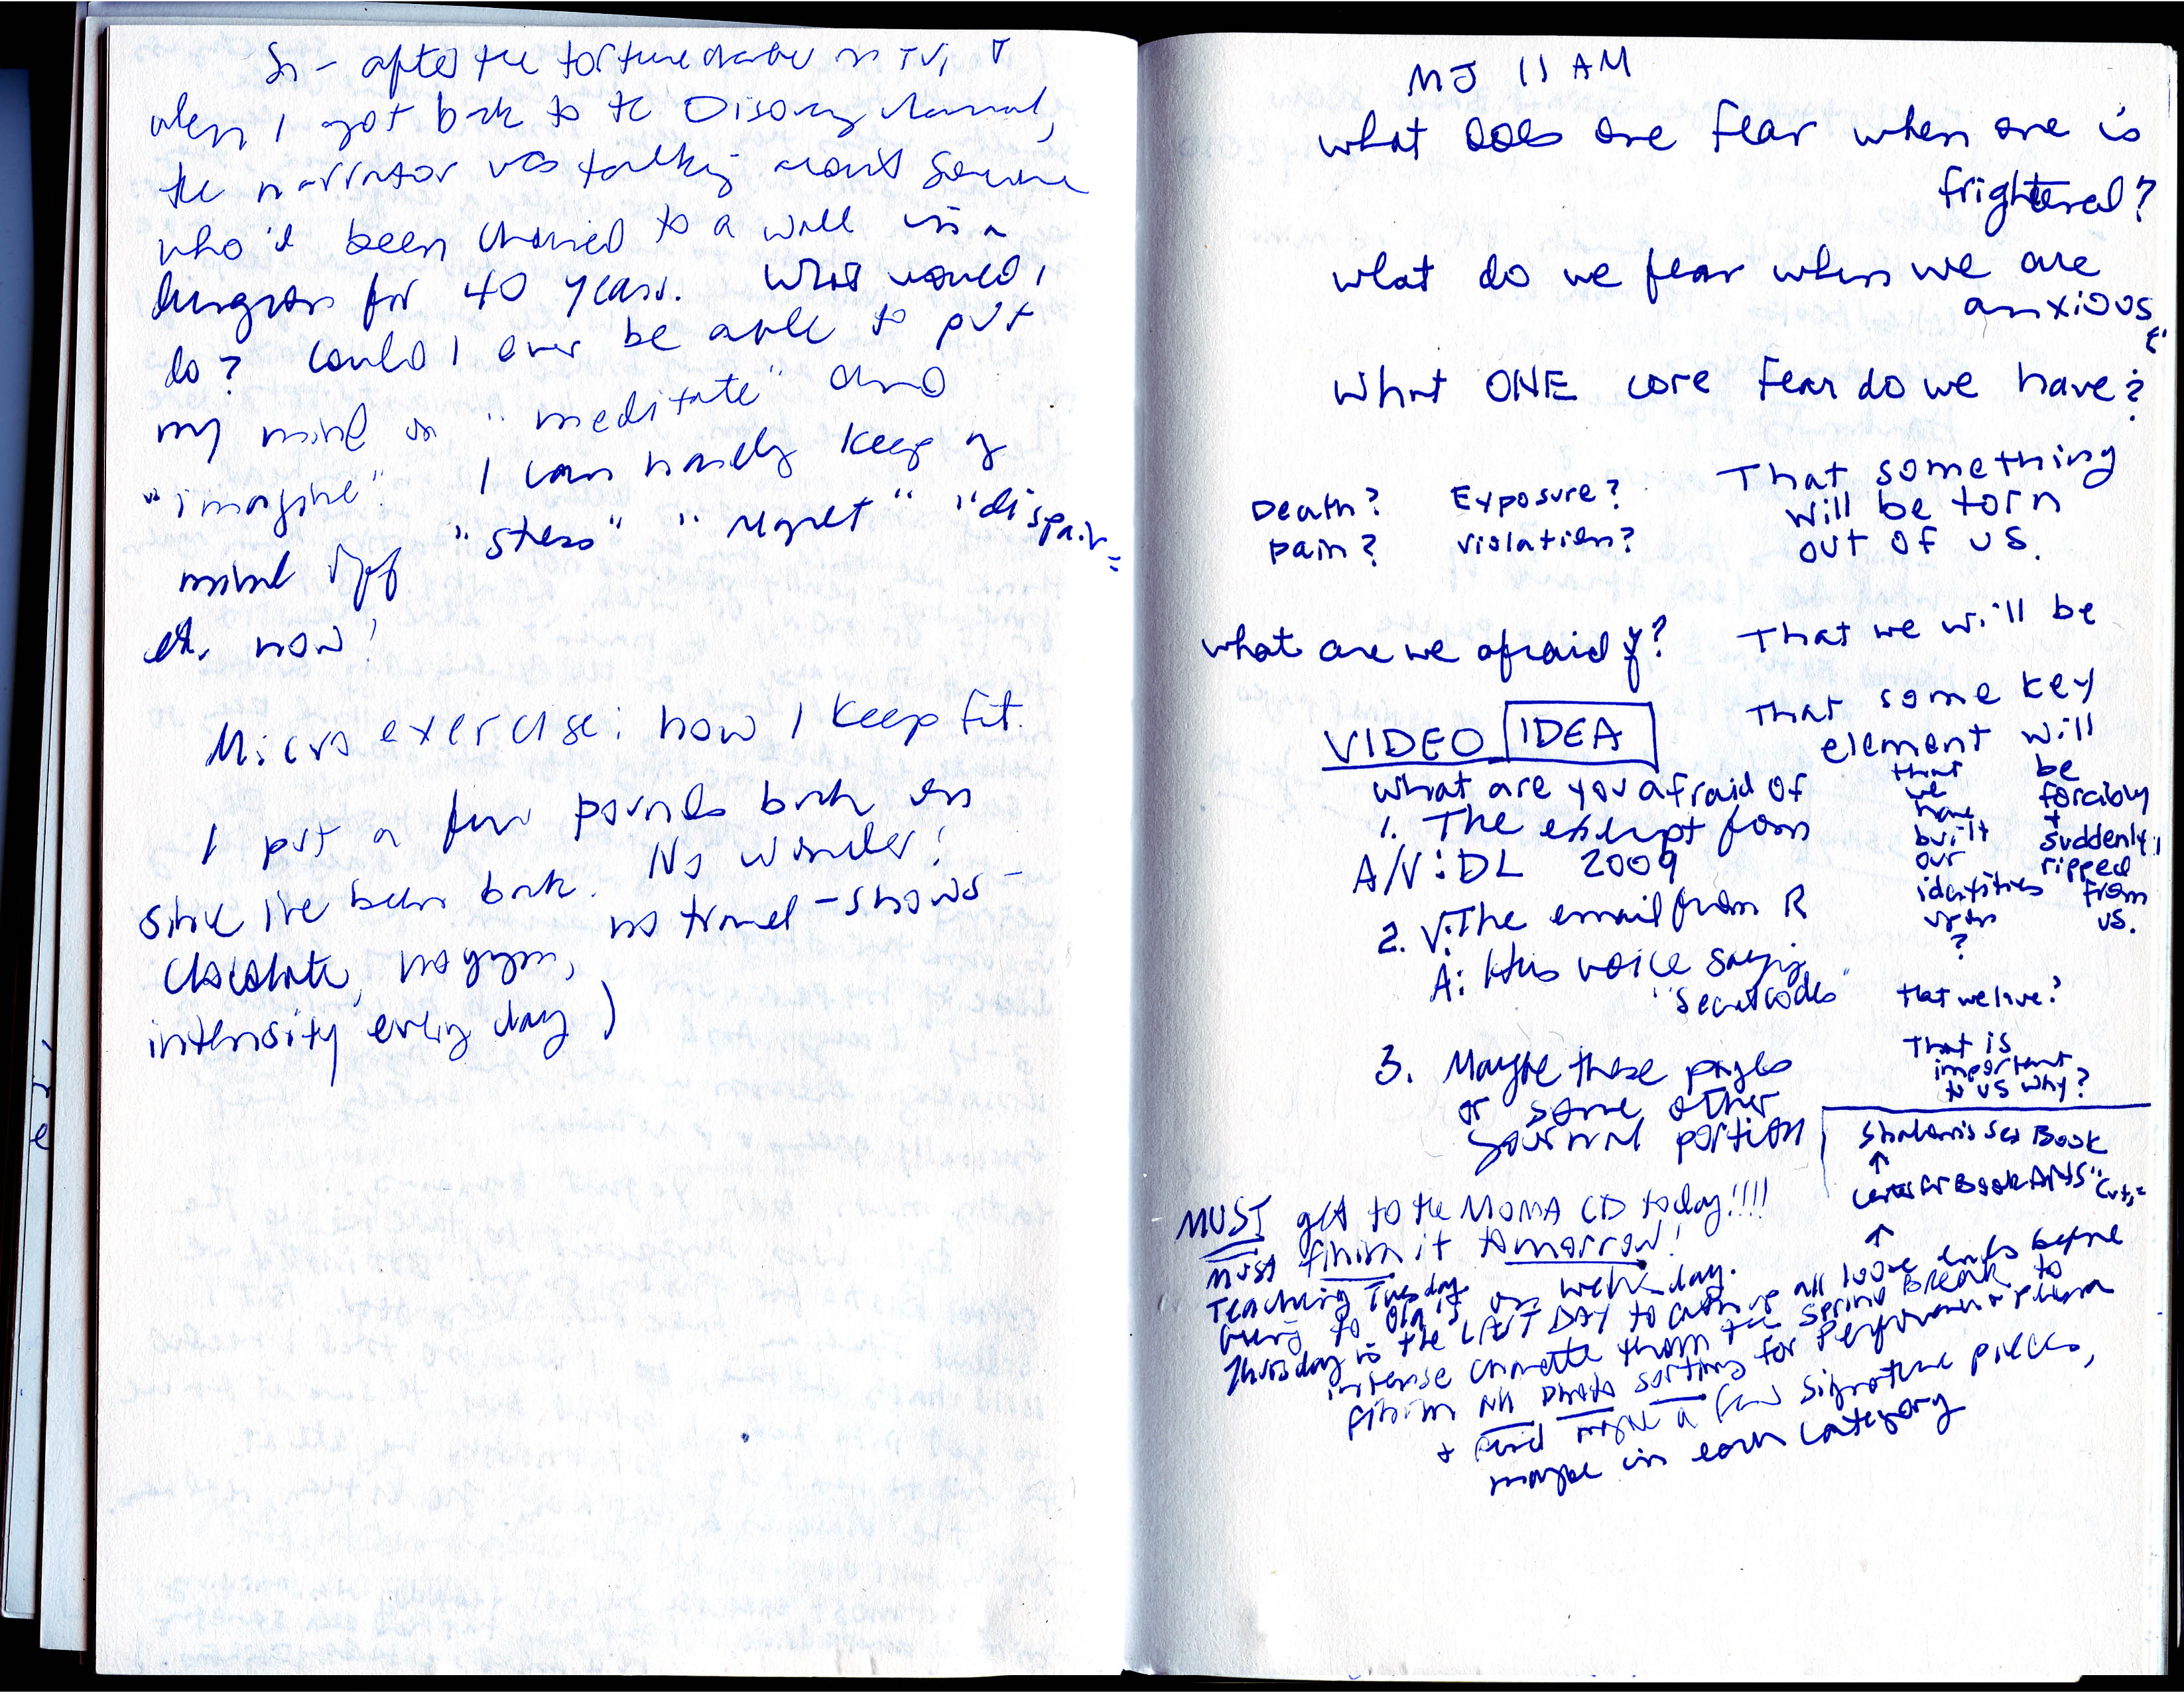 So - after the torture on TV,
when I got back to the Discovery channel,
the narrator was talking about someone
who'd been chained to a wall in a
dungeon for 40 years. What would I
do? Could I ever be able to put
my mind on "meditate" and
"imagine". I can hardly keep my
mind off "stress" "regret" "dispair"
et. now!
Micro exercise: how I keep fit.
I put a few pounds back on
since I've been back. No wonder!
chocolate, no gym, no travel - shows -
intensity every day)
MJ 11 AM
what does one fear when one is
frightened?
what do we fear when we are
anxious
What ONE core fear do we have?
Death? Exposure?
pain? violation?
That something
will be torn
out of us.
what are we afraid of?
That we will be
That some key
element will
be
forcibly
+
suddenly
ripped
from
us.
that
we
have
built
our
identities
upon
?
that we love?
That is
important
to us why?
VIDEO IDEA
what are you afraid of
1. The exerpt from
A/V: DL 2009
2. V: The email from R
A: His voice saying
"Secret codes"
3. Maybe these pages
or some other
journal portion
Book
↑
Center for Book Arts
↑
MUST get to the MOMA CD today!!!!
must finish it tomorrow!
Teaching Tuesday
Thursday is the LAST DAY to all loose ends before
intense the spring Break to
finish All Photo sorting for Performance +
+ find maybe a few signature pieces,
maybe in each category